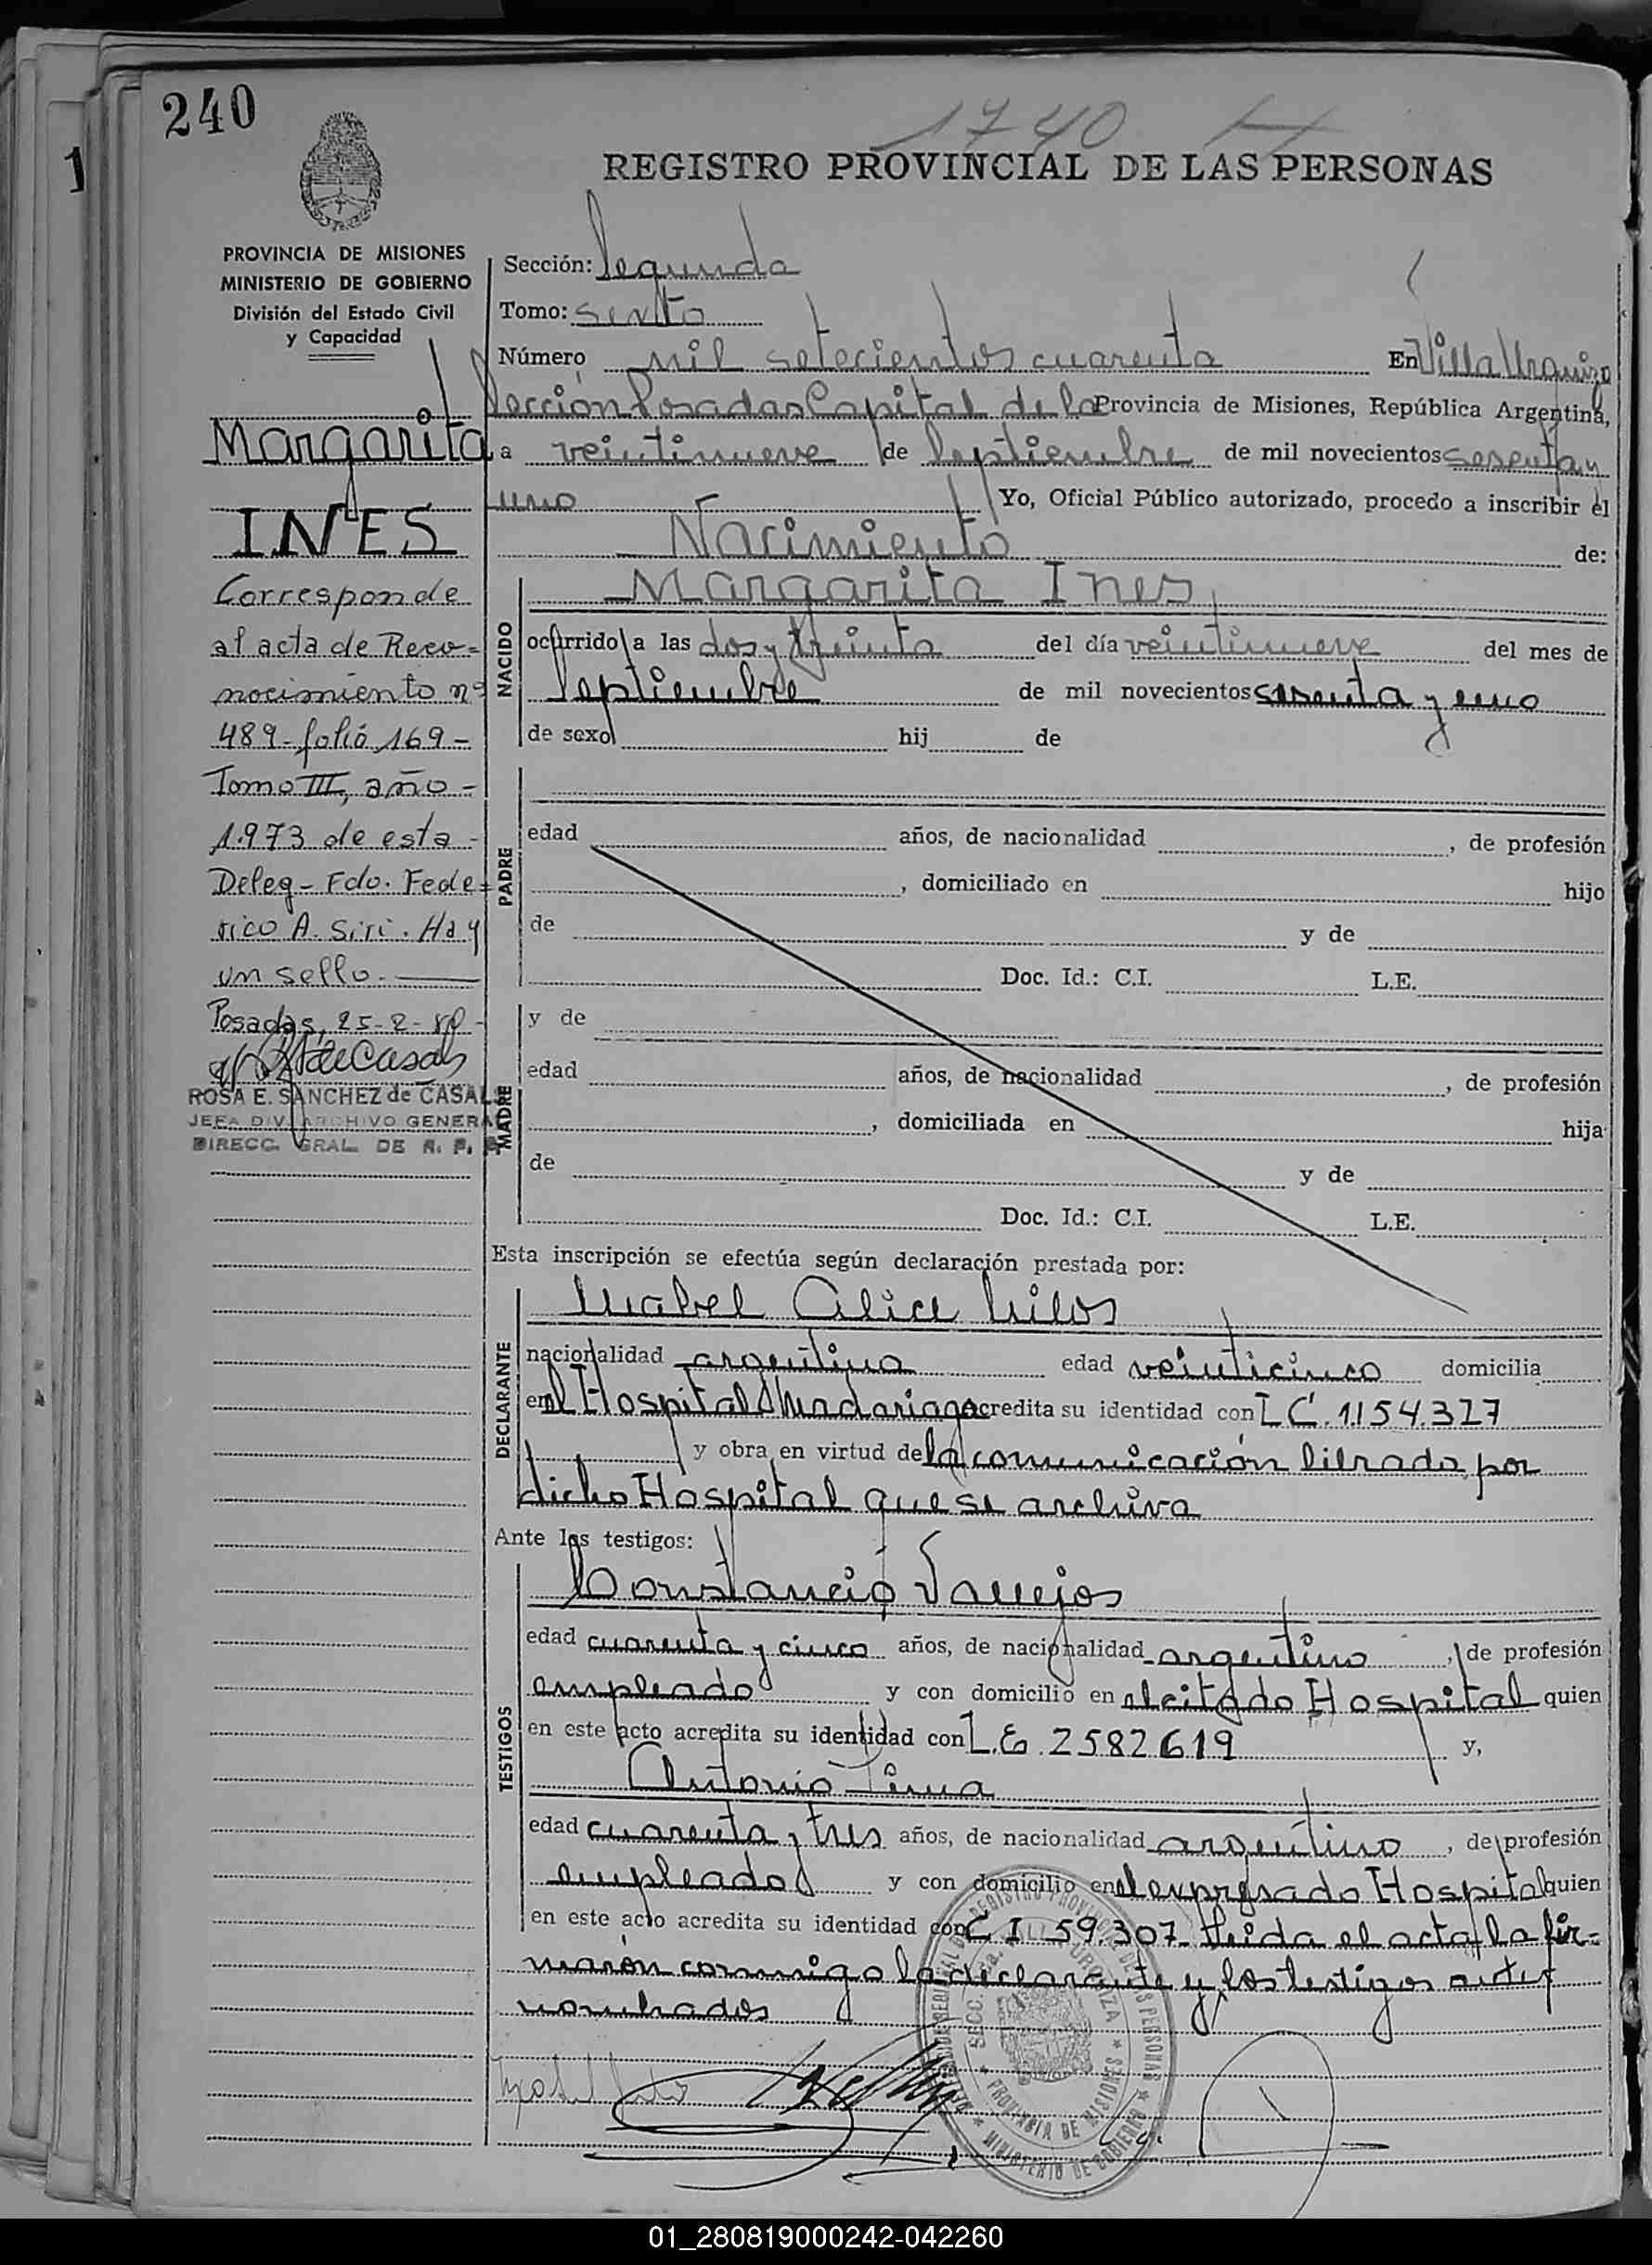 240
1
1740
REGISTRO PROVINCIAL DE LAS PERSONAS
PROVINCIA DE MISIONES
MINISTERIO DE GOBIERNO
División del Estado Civil
y Capacidad
Margarita
INES
Corresponde
al acta de Reco-
nocimiento nº
489-folio 169-
Tomo III, año-
1.973 de esta-
Deleg- Fdo. Fede-
rico A. Siri. Hay
un sello.
Posadas, 25-2-80-
ROSA E. SANCHEZ de CASALS
JEFA DIV. ARCHIVO GENERAL
DIRECC. GRAL. DE R. P. P.
Sección: Segunda
Tomo: Sexto
Número mil setecientos cuarenta En Villa Urquiza
Sección Posadas Capital de la Provincia de Misiones, República Argentina,
a veintinueve de Septiembre de mil novecientos sesenta y
uno Yo, Oficial Público autorizado, procedo a inscribir el
Nacimiento de:
NACIDO
Margarita Ines
ocurrido a las dos y treinta del día veintinueve del mes de
Septiembre de mil novecientos sesenta y uno
de sexo hij de
PADRE
edad años, de nacionalidad , de profesión
, domiciliado en hijo
de y de
Doc. Id.: C.I. L.E.
MADRE
y de
edad años, de nacionalidad , de profesión
, domiciliada en hija
de y de
Doc. Id.: C.I. L.E.
Esta inscripción se efectúa según declaración prestada por:
DECLARANTE
Mabel Alice
nacionalidad argentina edad veinticinco domicilia
en el Hospital Madariaga acredita su identidad con L C. 1.154.327
y obra en virtud de la comunicación librada por
dicho Hospital que se archiva
Ante los testigos:
TESTIGOS
Constancio Vallejos
edad cuarenta y cinco años, de nacionalidad argentino , de profesión
empleado y con domicilio en el citado Hospital quien
en este acto acredita su identidad con L.E. 2582619 y,
Antonio
edad cuarenta y tres años, de nacionalidad argentino , de profesión
empleado y con domicilio en el expresado Hospital quien
en este acto acredita su identidad con C I 59.307 Leida el acta la fir-
maron conmigo la declarante y los testigos antes
nombrados
REGISTRO PROVINCIAL DE LAS PERSONAS
MINISTERIO DE GOBIERNO
SECC. 2a. VILLA URQUIZA
PROVINCIA DE MISIONES
01_280819000242-042260